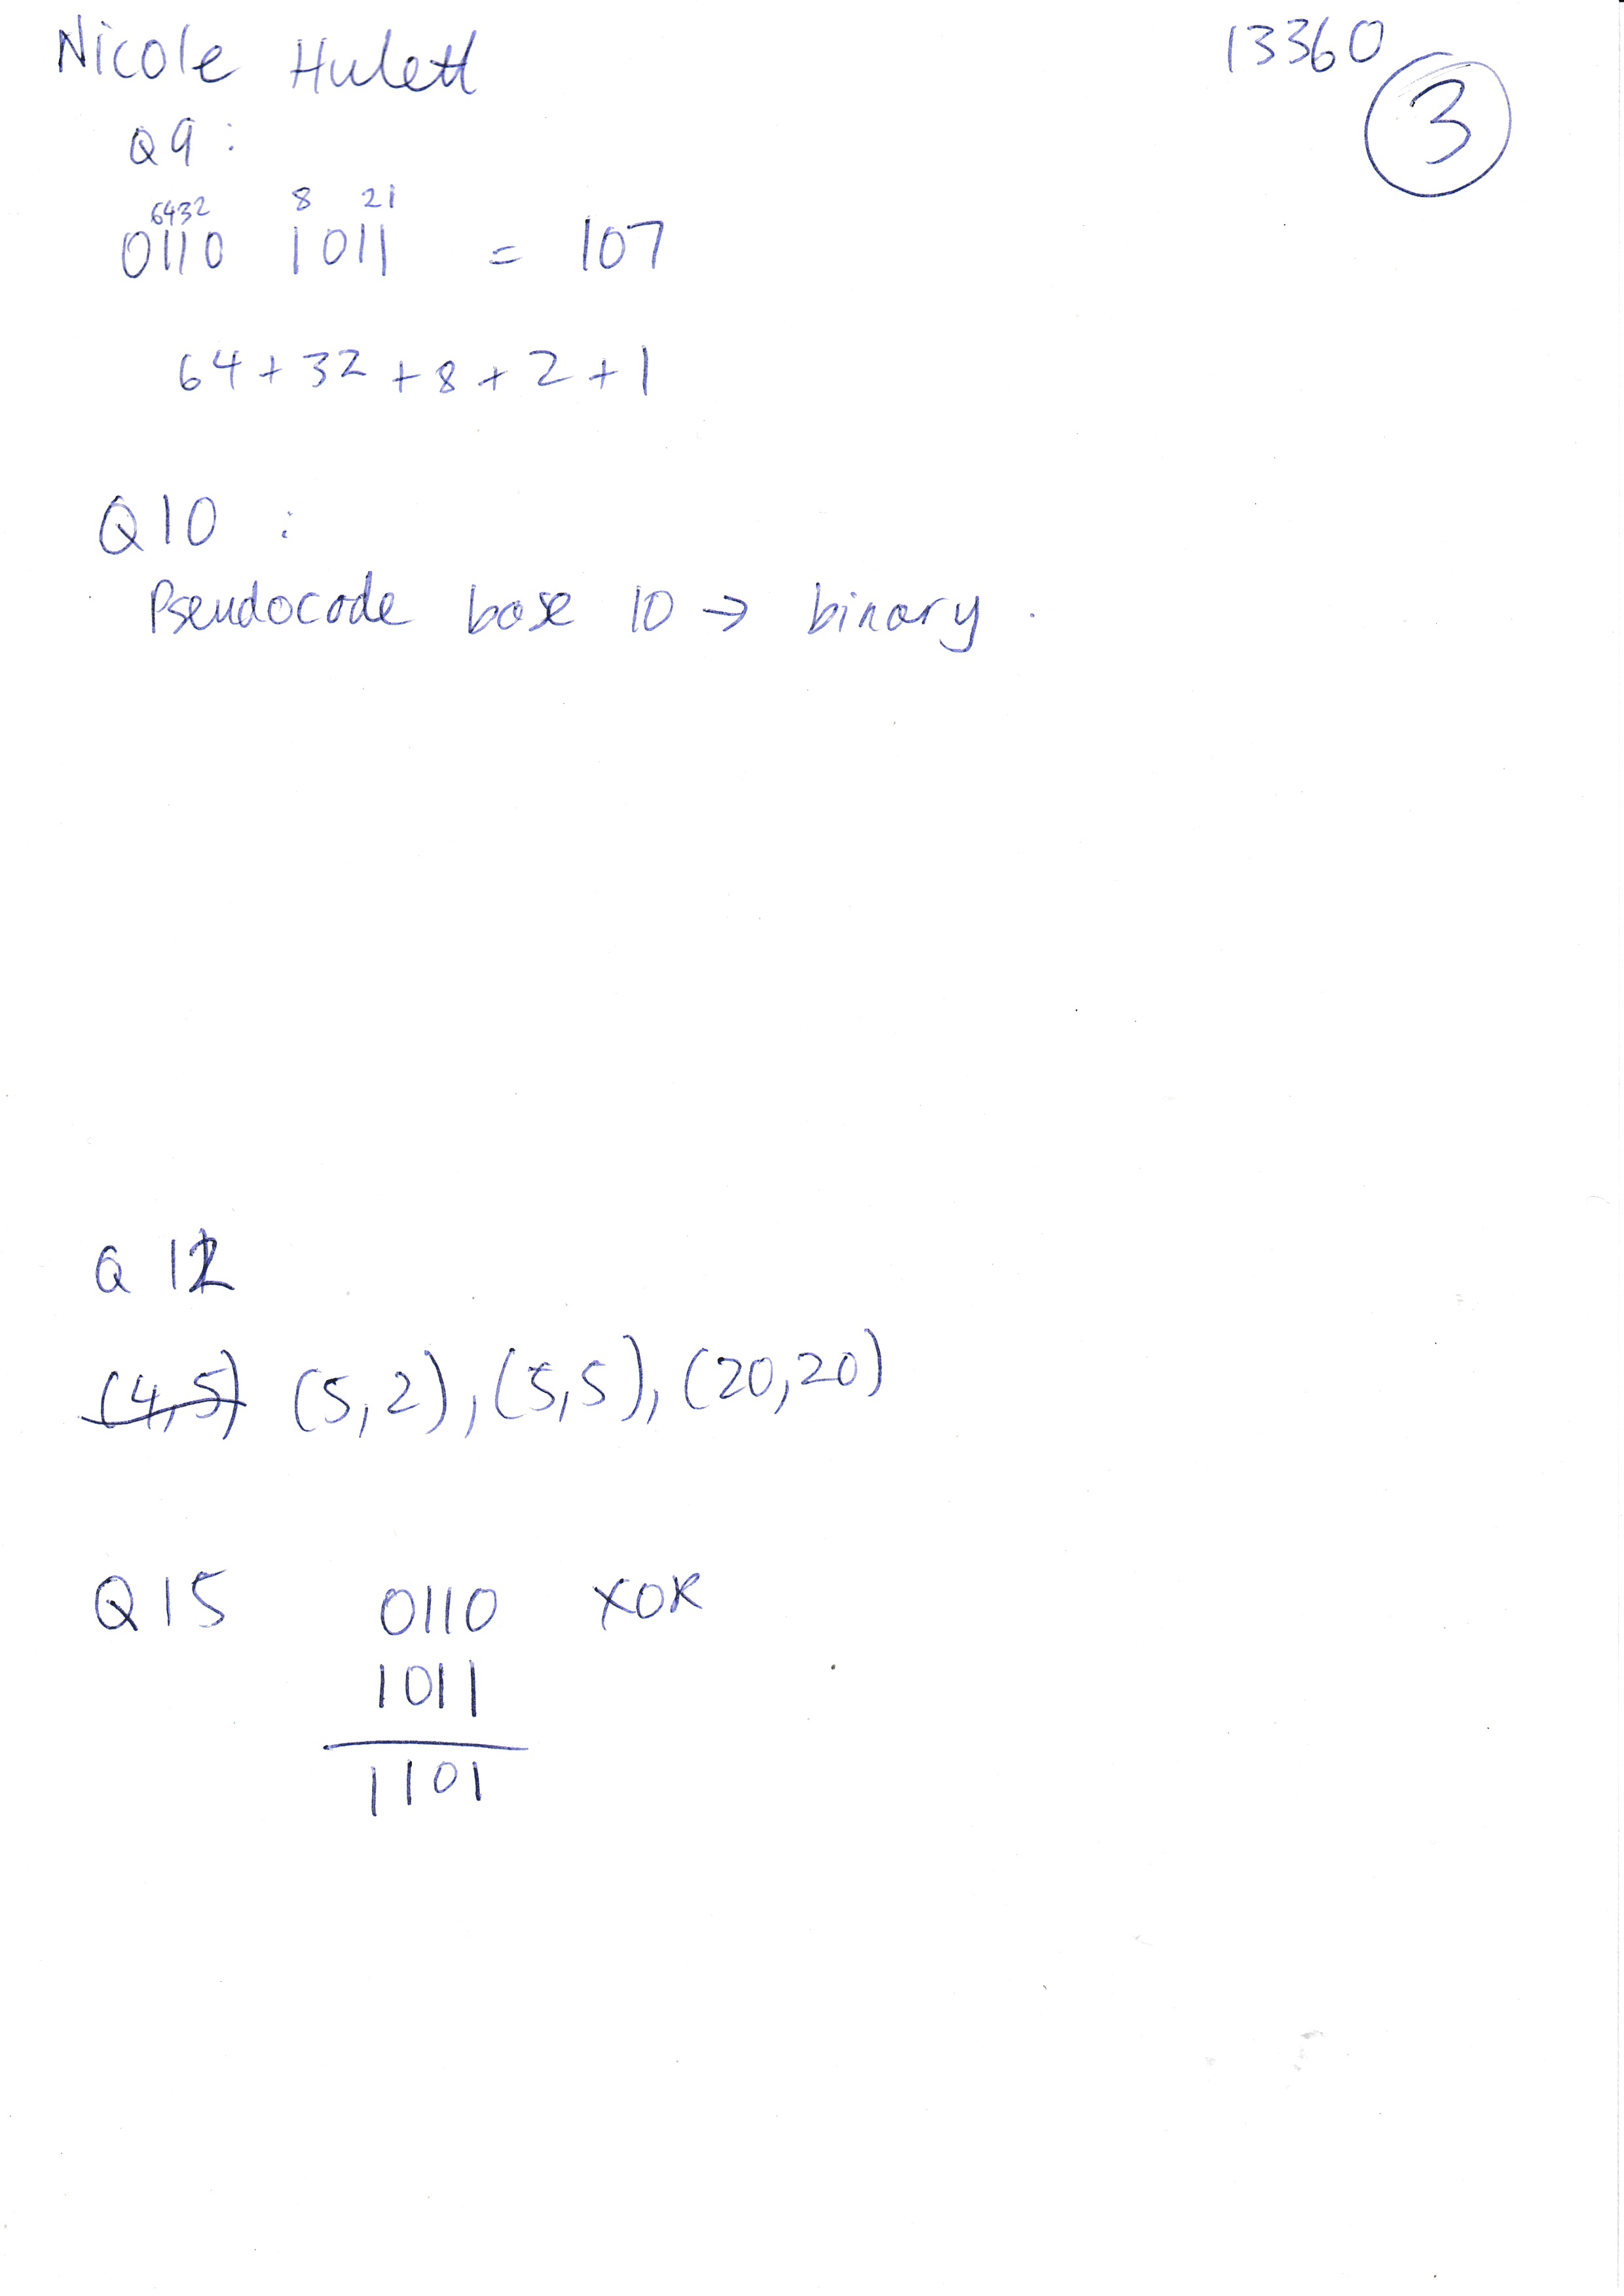 Nicole Hulett 13360
3
Q9:
64 32 8 2 1
0110 1011 = 107
64 + 32 + 8 + 2 + 1
Q10 :
Pseudocode base 10 → binary.
Q 12
(4,5) (5,2), (5,5), (20,20)
Q15 0110 XOR
1011
1101